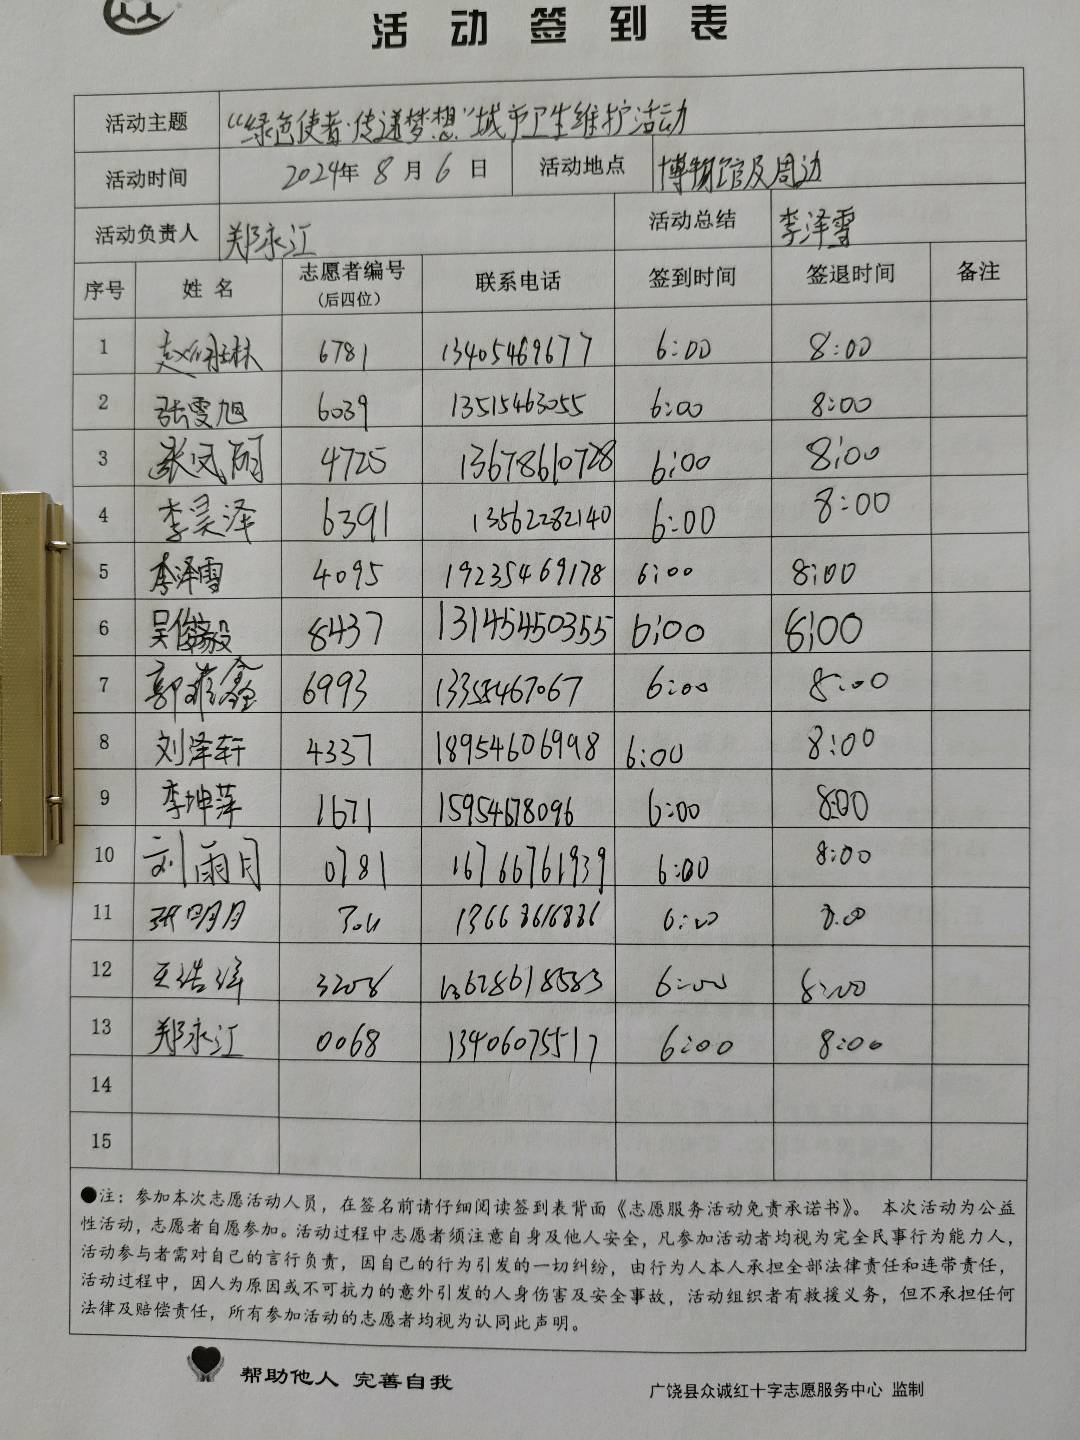 活动签到表
活动主题 “绿色使者·传递梦想”城市卫生维护活动
活动时间 2024年8月6日 活动地点 博物馆及周边
活动负责人 郑永江 活动总结 李泽雪
序号 姓名 志愿者编号（后四位） 联系电话 签到时间 签退时间 备注
1 6781 13405469677 6:00 8:00
2 张雯旭 6039 13515463055 6:00 8:00
3 张凤丽 4725 13678610728 6:00 8:00
4 李昊泽 6391 13562282140 6:00 8:00
5 李泽雪 4095 19235469178 6:00 8:00
6 吴俊毅 8437 13145450355 6:00 8:00
7 郭菲鑫 6993 13358467067 6:00 8:00
8 刘泽轩 4337 18954606998 6:00 8:00
9 李坤萍 1671 15954678096 6:00 8:00
10 刘雨月 0781 16766761939 6:00 8:00
11 张明月 6:00 8:00
12 3208 13628618583 6:00 8:00
13 郑永江 0068 13406075517 6:00 8:00
14
15
●注：参加本次志愿活动人员，在签名前请仔细阅读签到表背面《志愿服务活动免责承诺书》。 本次活动为公益
性活动，志愿者自愿参加。活动过程中志愿者须注意自身及他人安全，凡参加活动者均视为完全民事行为能力人，
活动参与者需对自己的言行负责，因自己的行为引发的一切纠纷，由行为人本人承担全部法律责任和连带责任，
活动过程中，因人为原因或不可抗力的意外引发的人身伤害及安全事故，活动组织者有救援义务，但不承担任何
法律及赔偿责任，所有参加活动的志愿者均视为认同此声明。
帮助他人 完善自我
广饶县众诚红十字志愿服务中心 监制